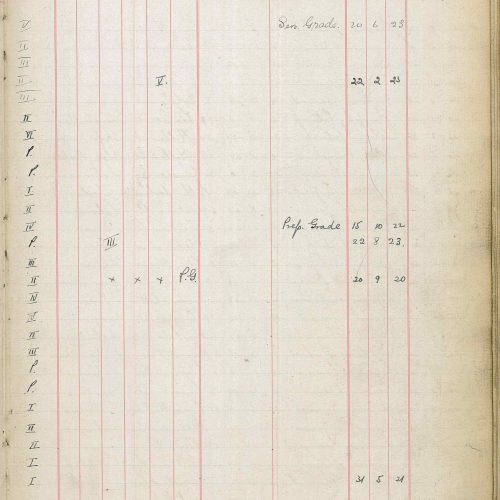 V Sen. Grade. 20 6 23
II
III
II V. 22 2 23
III
II
VI
P.
P.
I
II
IV Prep. Grade 15 10 22
P. III 22 8 23.
III
II x x x P.G. 20 9 20
IV
V
II
III
P.
P.
I
II
II
I
I 31 5 21